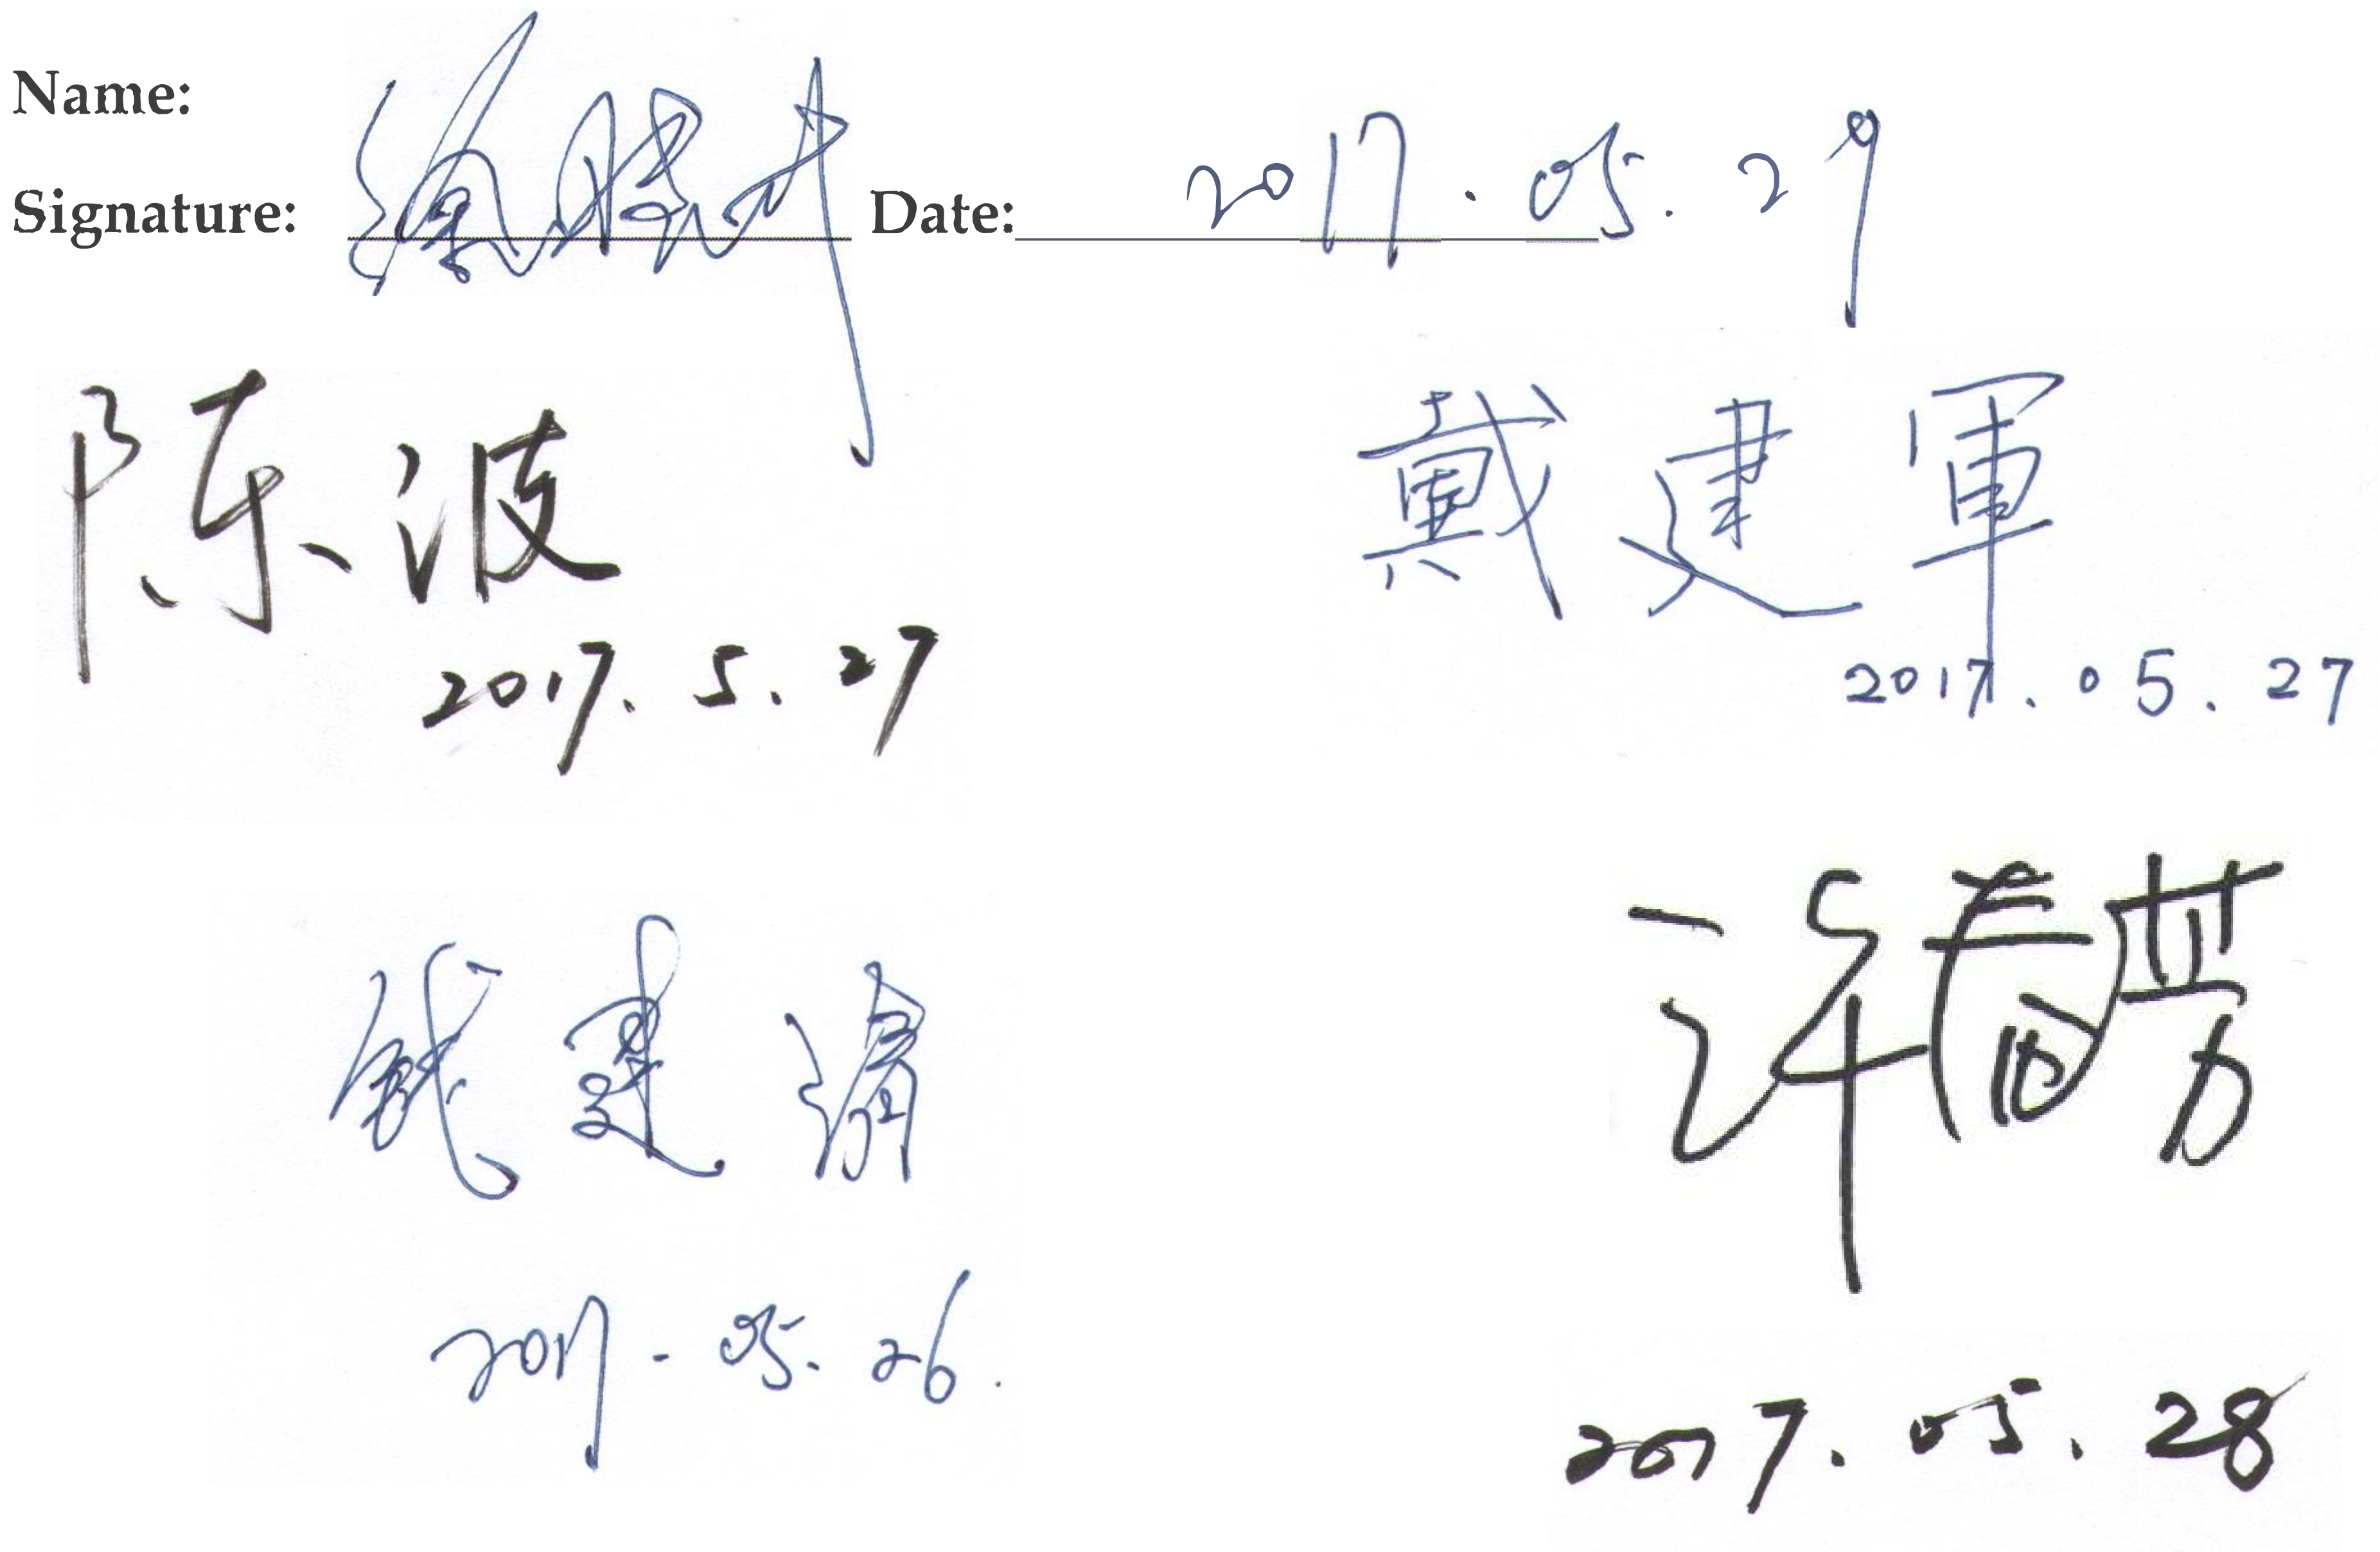 Name:
Signature: Date: 2017.05.29
陈波
2017.5.27
戴建軍
2017.05.27
钱建清
2017.05.26.
许春梦
2017.05.28